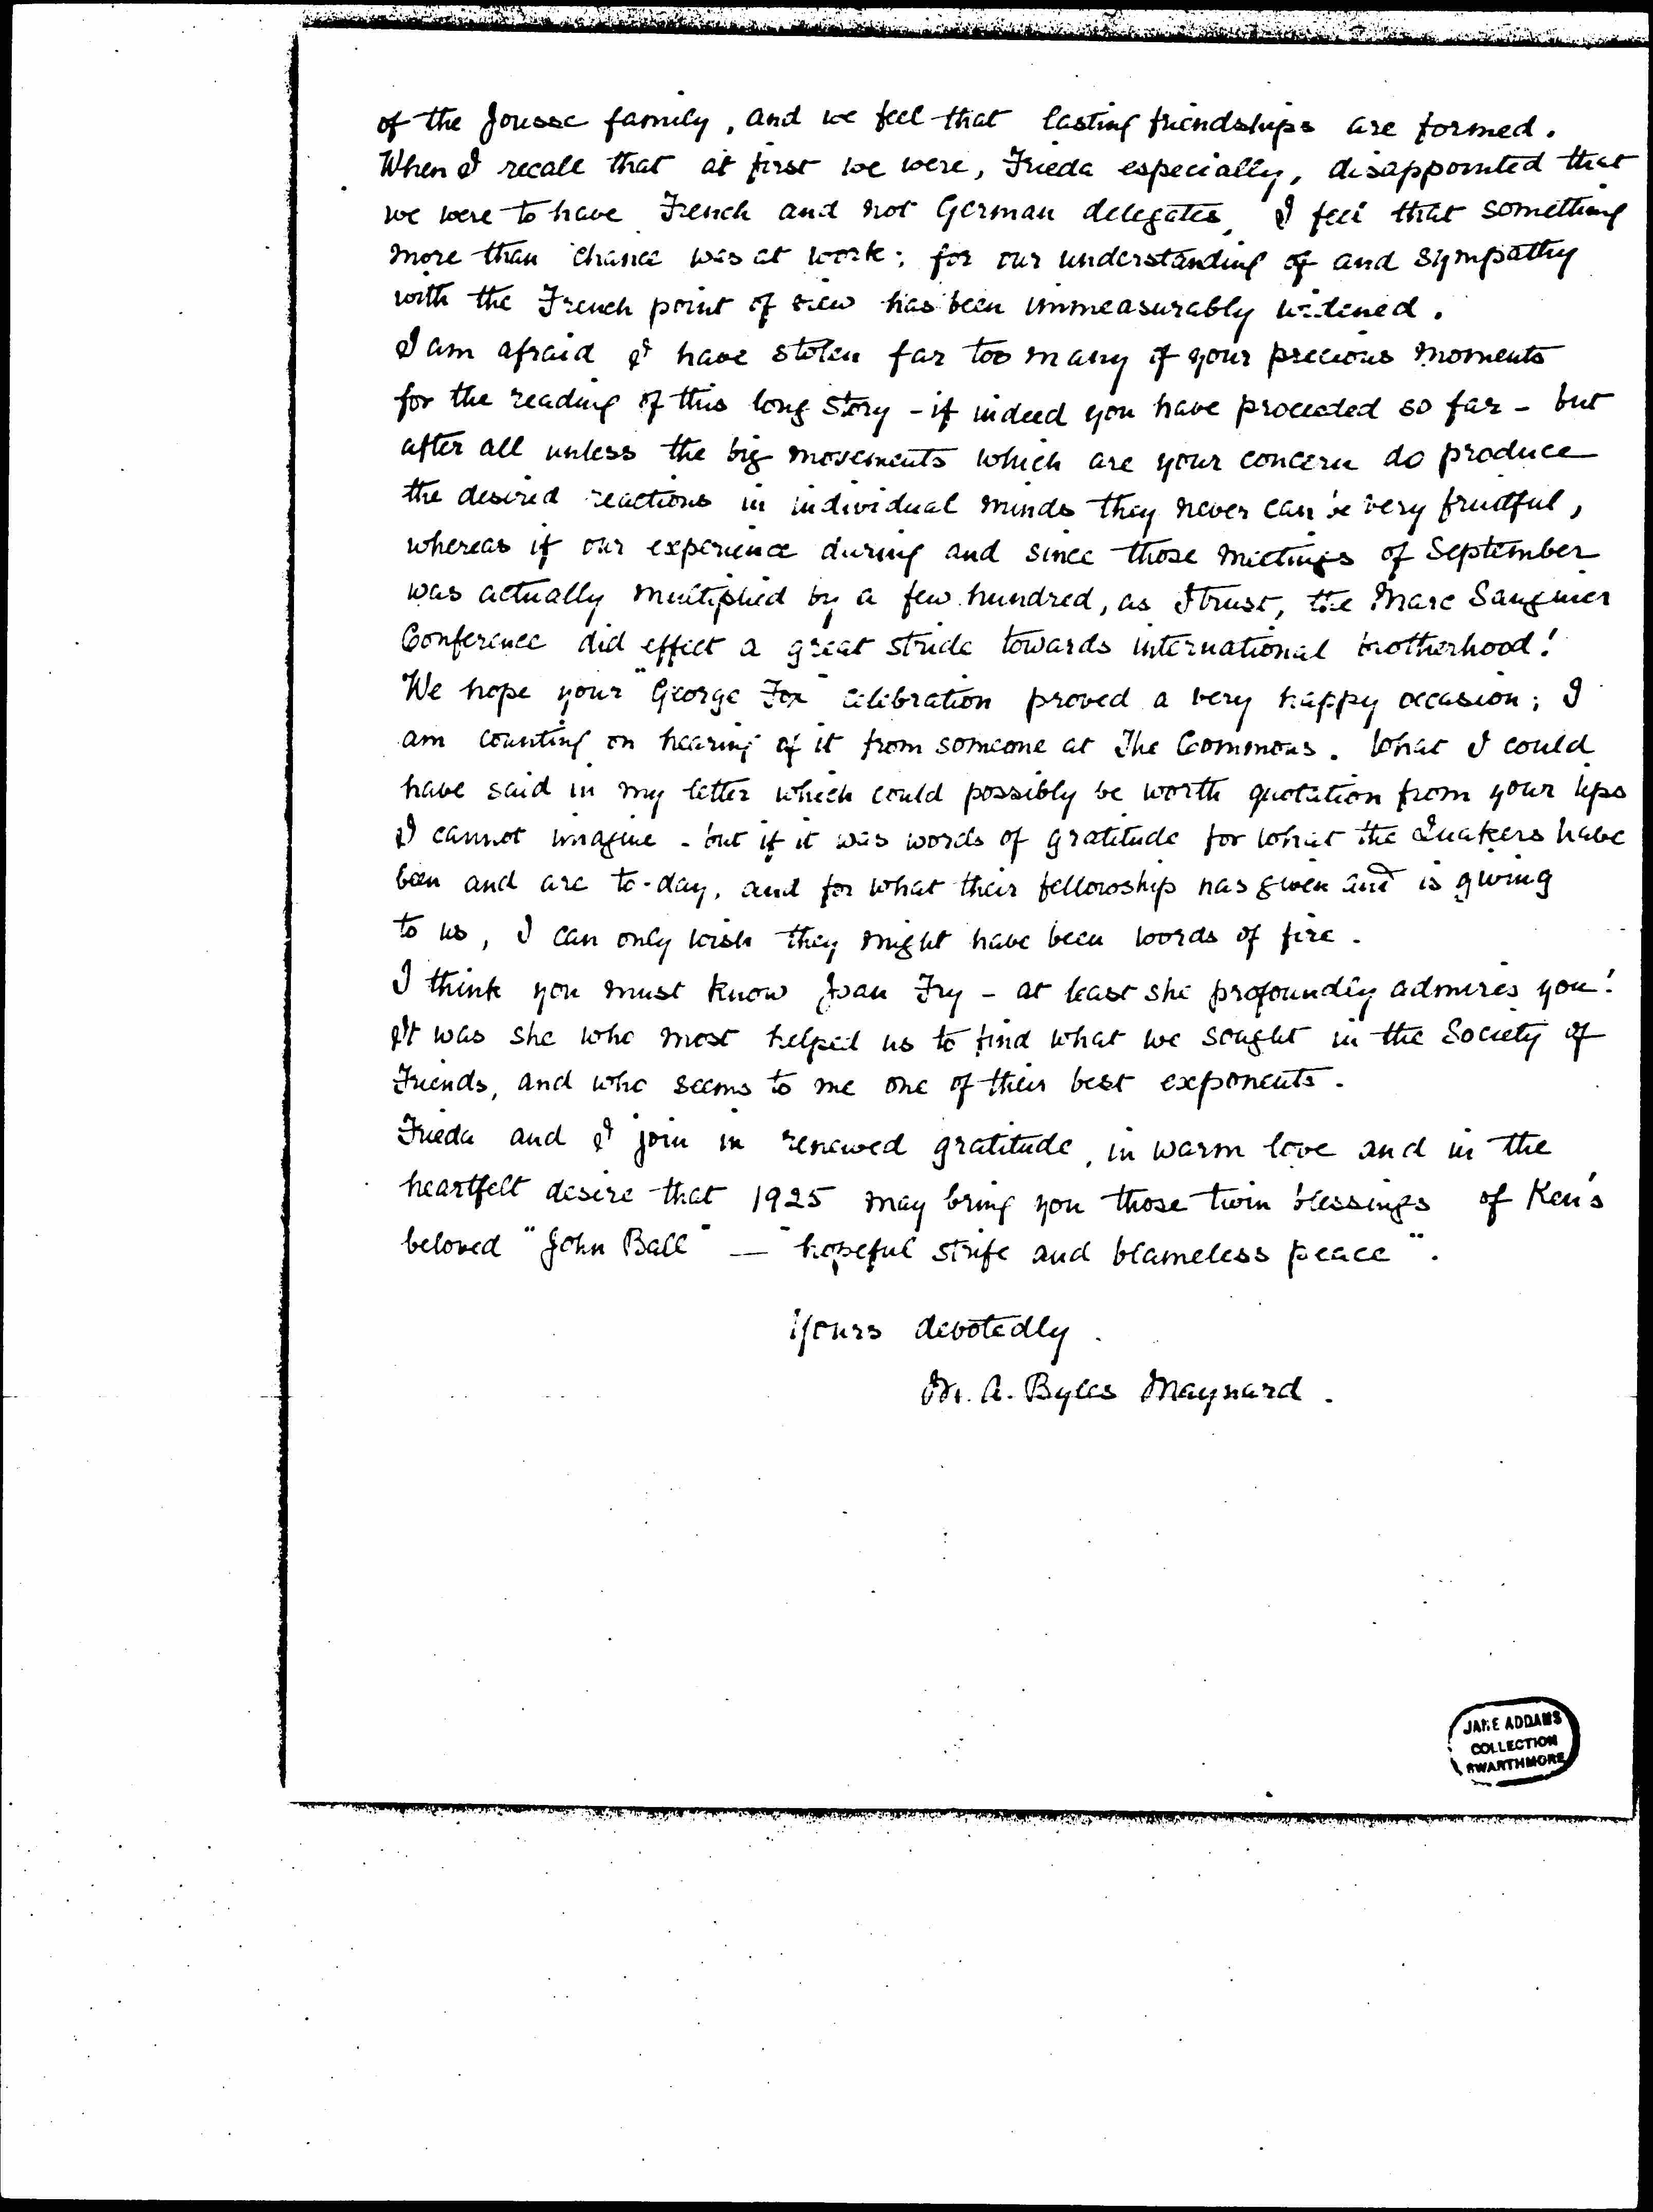 of the Jousse family, and we feel that lasting friendships are formed.
When I recall that at first we were, Frieda especially, disappointed that
we were to have French and not German delegates, I feel that something
more than chance was at work; for our understanding of and sympathy
with the French point of view has been immeasurably widened.
I am afraid I have stolen far too many of your precious moments
for the reading of this long story - if indeed you have proceeded so far - but
after all unless the big movements which are your concern do produce
the desired reactions in individual minds they never can be very fruitful,
whereas if our experience during and since those meetings of September
was actually multiplied by a few hundred, as I trust, the Marc Sangnier
Conference did effect a great stride towards international brotherhood!
We hope your "George Fox" celebration proved a very happy occasion; I
am counting on hearing of it from someone at The Commons. What I could
have said in my letter which could possibly be worth quotation from your lips
I cannot imagine - but if it was words of gratitude for what the Quakers have
been and are to-day, and for what their fellowship has given and is giving
to us, I can only wish they might have been words of fire.
I think you must know Joan Fry - at least she profoundly admires you!
It was she who most helped us to find what we sought in the Society of
Friends, and who seems to me one of their best exponents.
Frieda and I join in renewed gratitude, in warm love and in the
heartfelt desire that 1925 may bring you those twin blessings of Ken's
beloved "John Ball" — "hopeful strife and blameless peace".
Yours devotedly.
M. A. Byles Maynard.
JANE ADDAMS
COLLECTION
SWARTHMORE